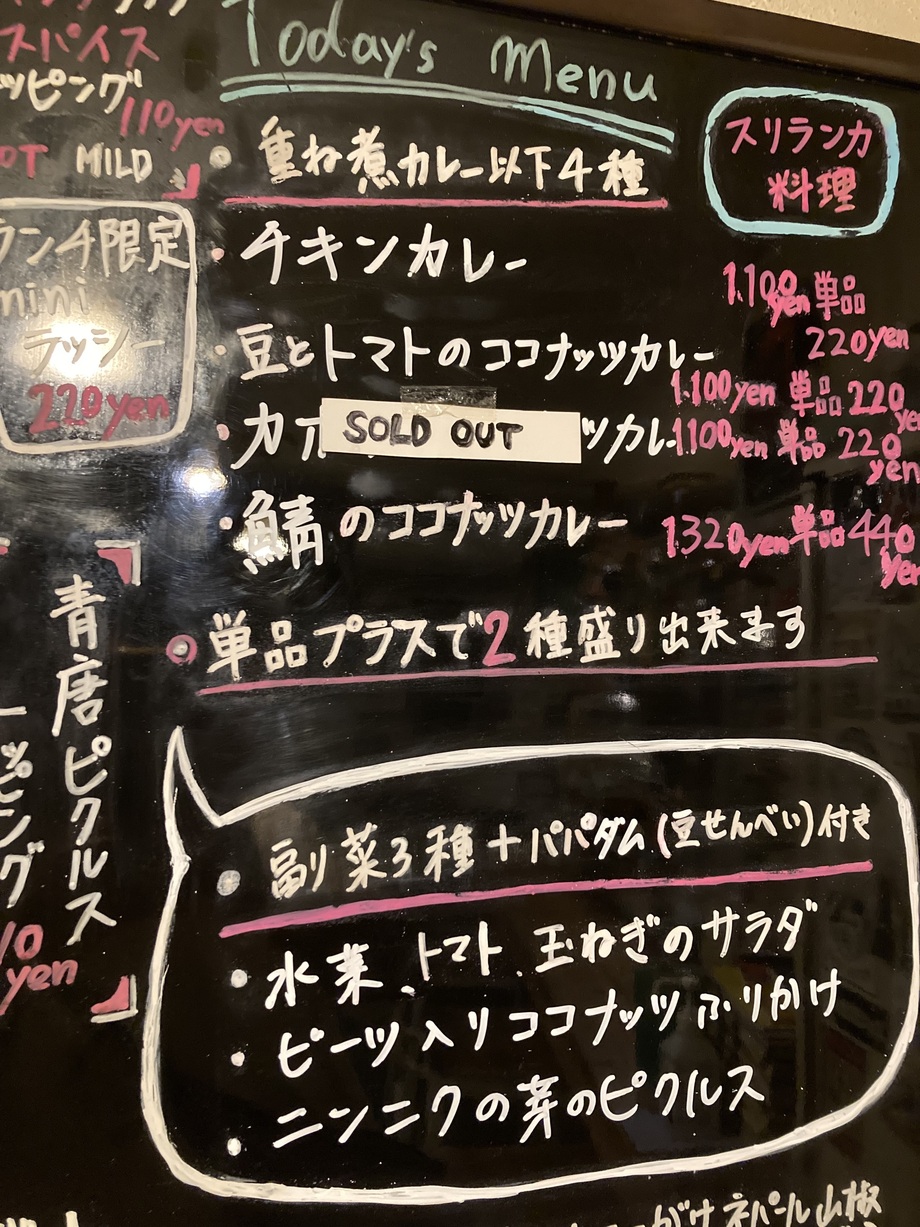 Today's Menu
スリランカ
料理
重ね煮カレー以下4種
チキンカレー
1.100yen 単品
220yen
豆とトマトのココナッツカレー
1.100yen 単品 220
yen
カ
SOLD OUT
ツカレー
1100yen 単品 220
yen
鯖のココナッツカレー
1320yen 単品 440
yen
単品プラスで2種盛り出来ます
副菜3種+パパダム(豆せんべい)付き
水菜、トマト、玉ねぎのサラダ
ビーツ入りココナッツふりかけ
ニンニクの芽のピクルス
スパイス
ッピング
110yen
OT MILD
ランチ限定
mini
ラッシー
220yen
青唐ピクルス
ッピング
10
yen
がけネパール山椒